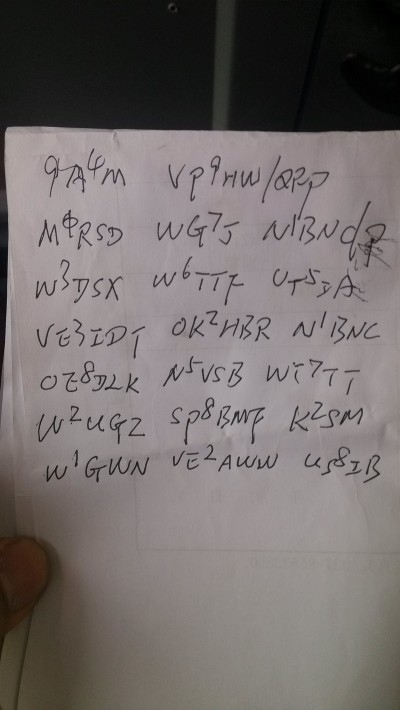 9A4M VP9HW/QRP
MØRSD WG7J N1BNC/
W3DSX W6TTF UT5IA
VE3IDT OK2HBR N1BNC
OE8DLK N5VSB WT7TT
W2UGZ SP8BMF K2SM
W1GWN VE2AWW US8IB